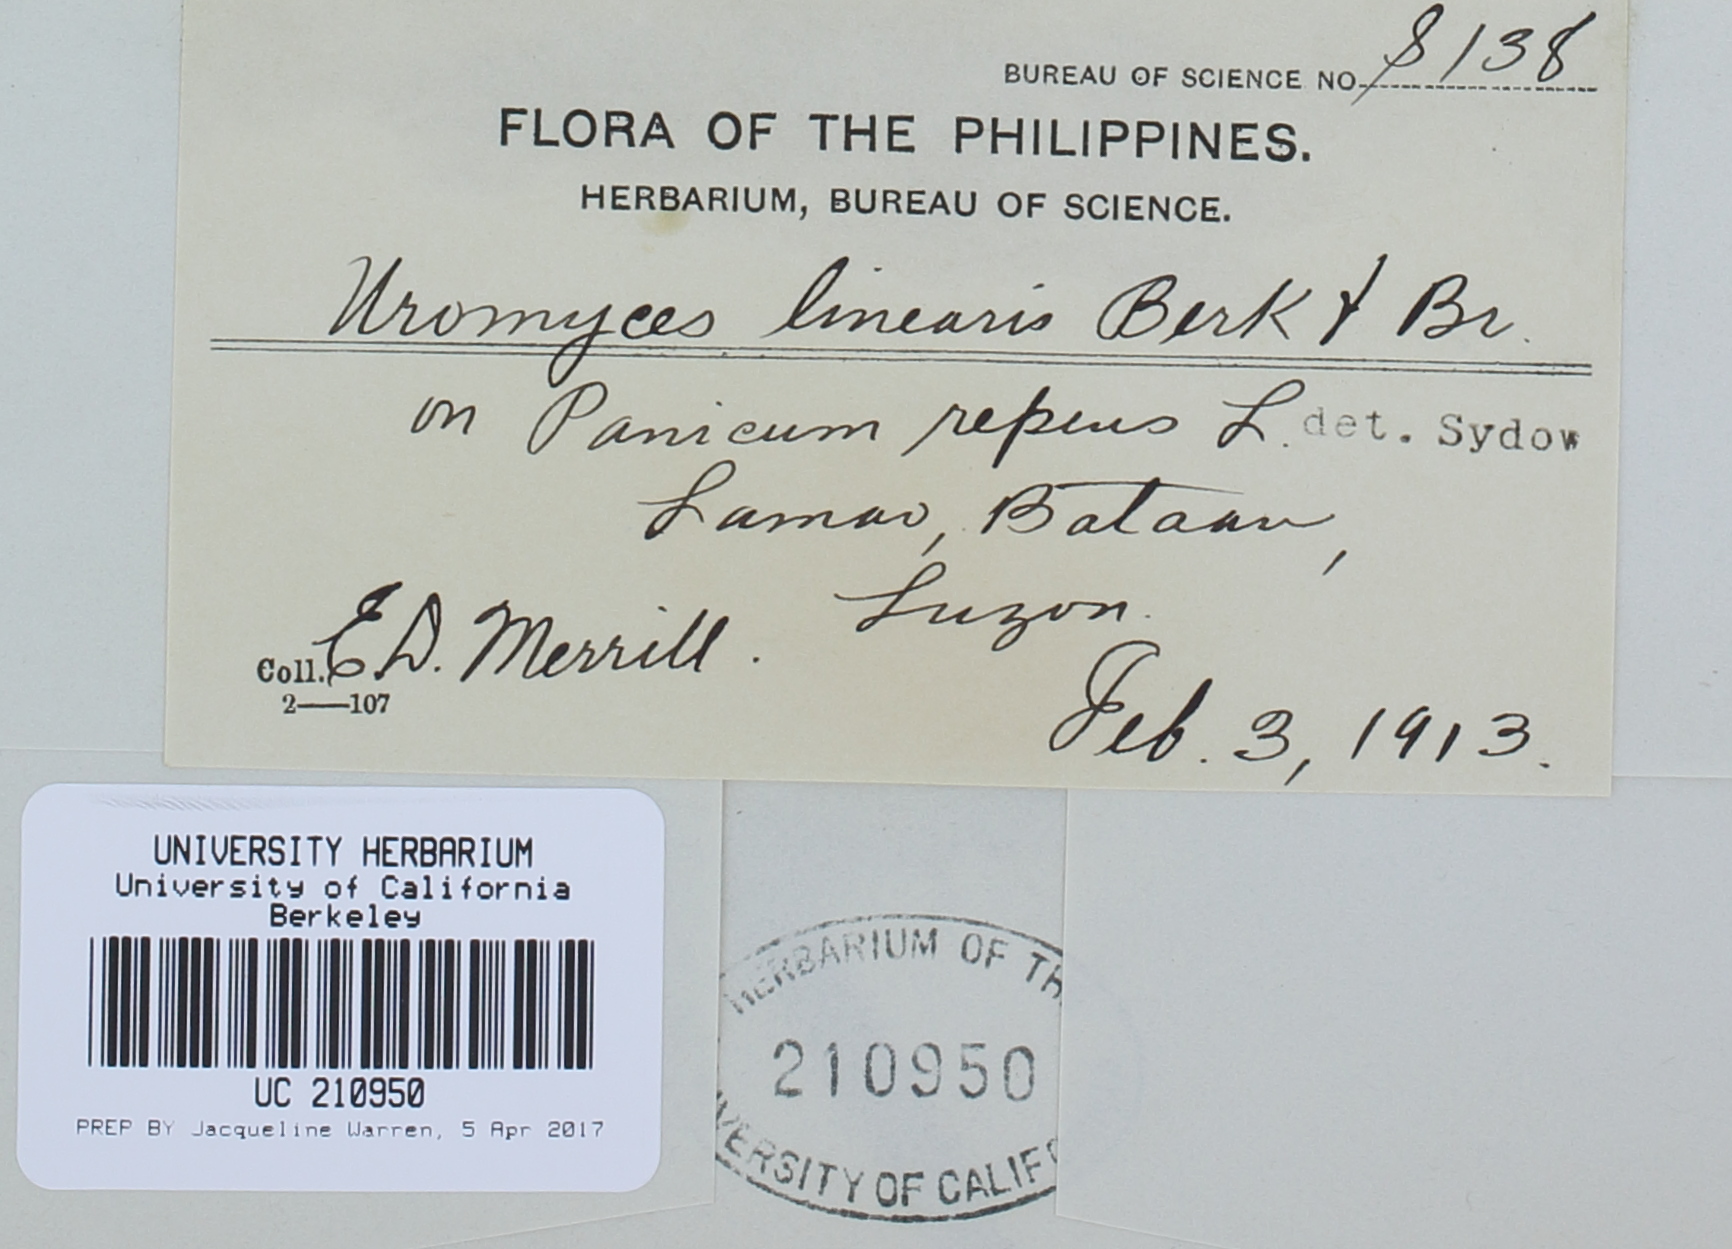 BUREAU OF SCIENCE NO. 8138
FLORA OF THE PHILIPPINES.
HERBARIUM, BUREAU OF SCIENCE.
Uromyces linearis Berk & Br.
on Panicum repens L. det. Sydow
Lamao, Bataan,
Luzon.
Coll. E.D. Merrill.
2—107
Feb. 3, 1913.
UNIVERSITY HERBARIUM
University of California
Berkeley
UC 210950
PREP BY Jacqueline Warren, 5 Apr 2017
HERBARIUM OF TH
210950
IVERSITY OF CALIF